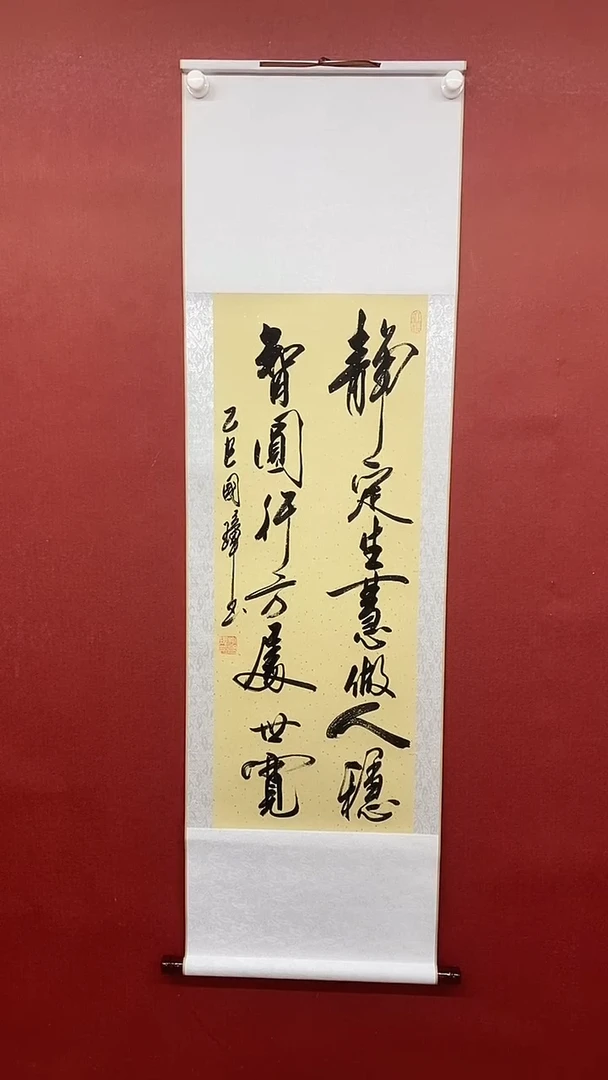 靜定生慧做人穩
智圓行方處世寬
乙巳國璋書